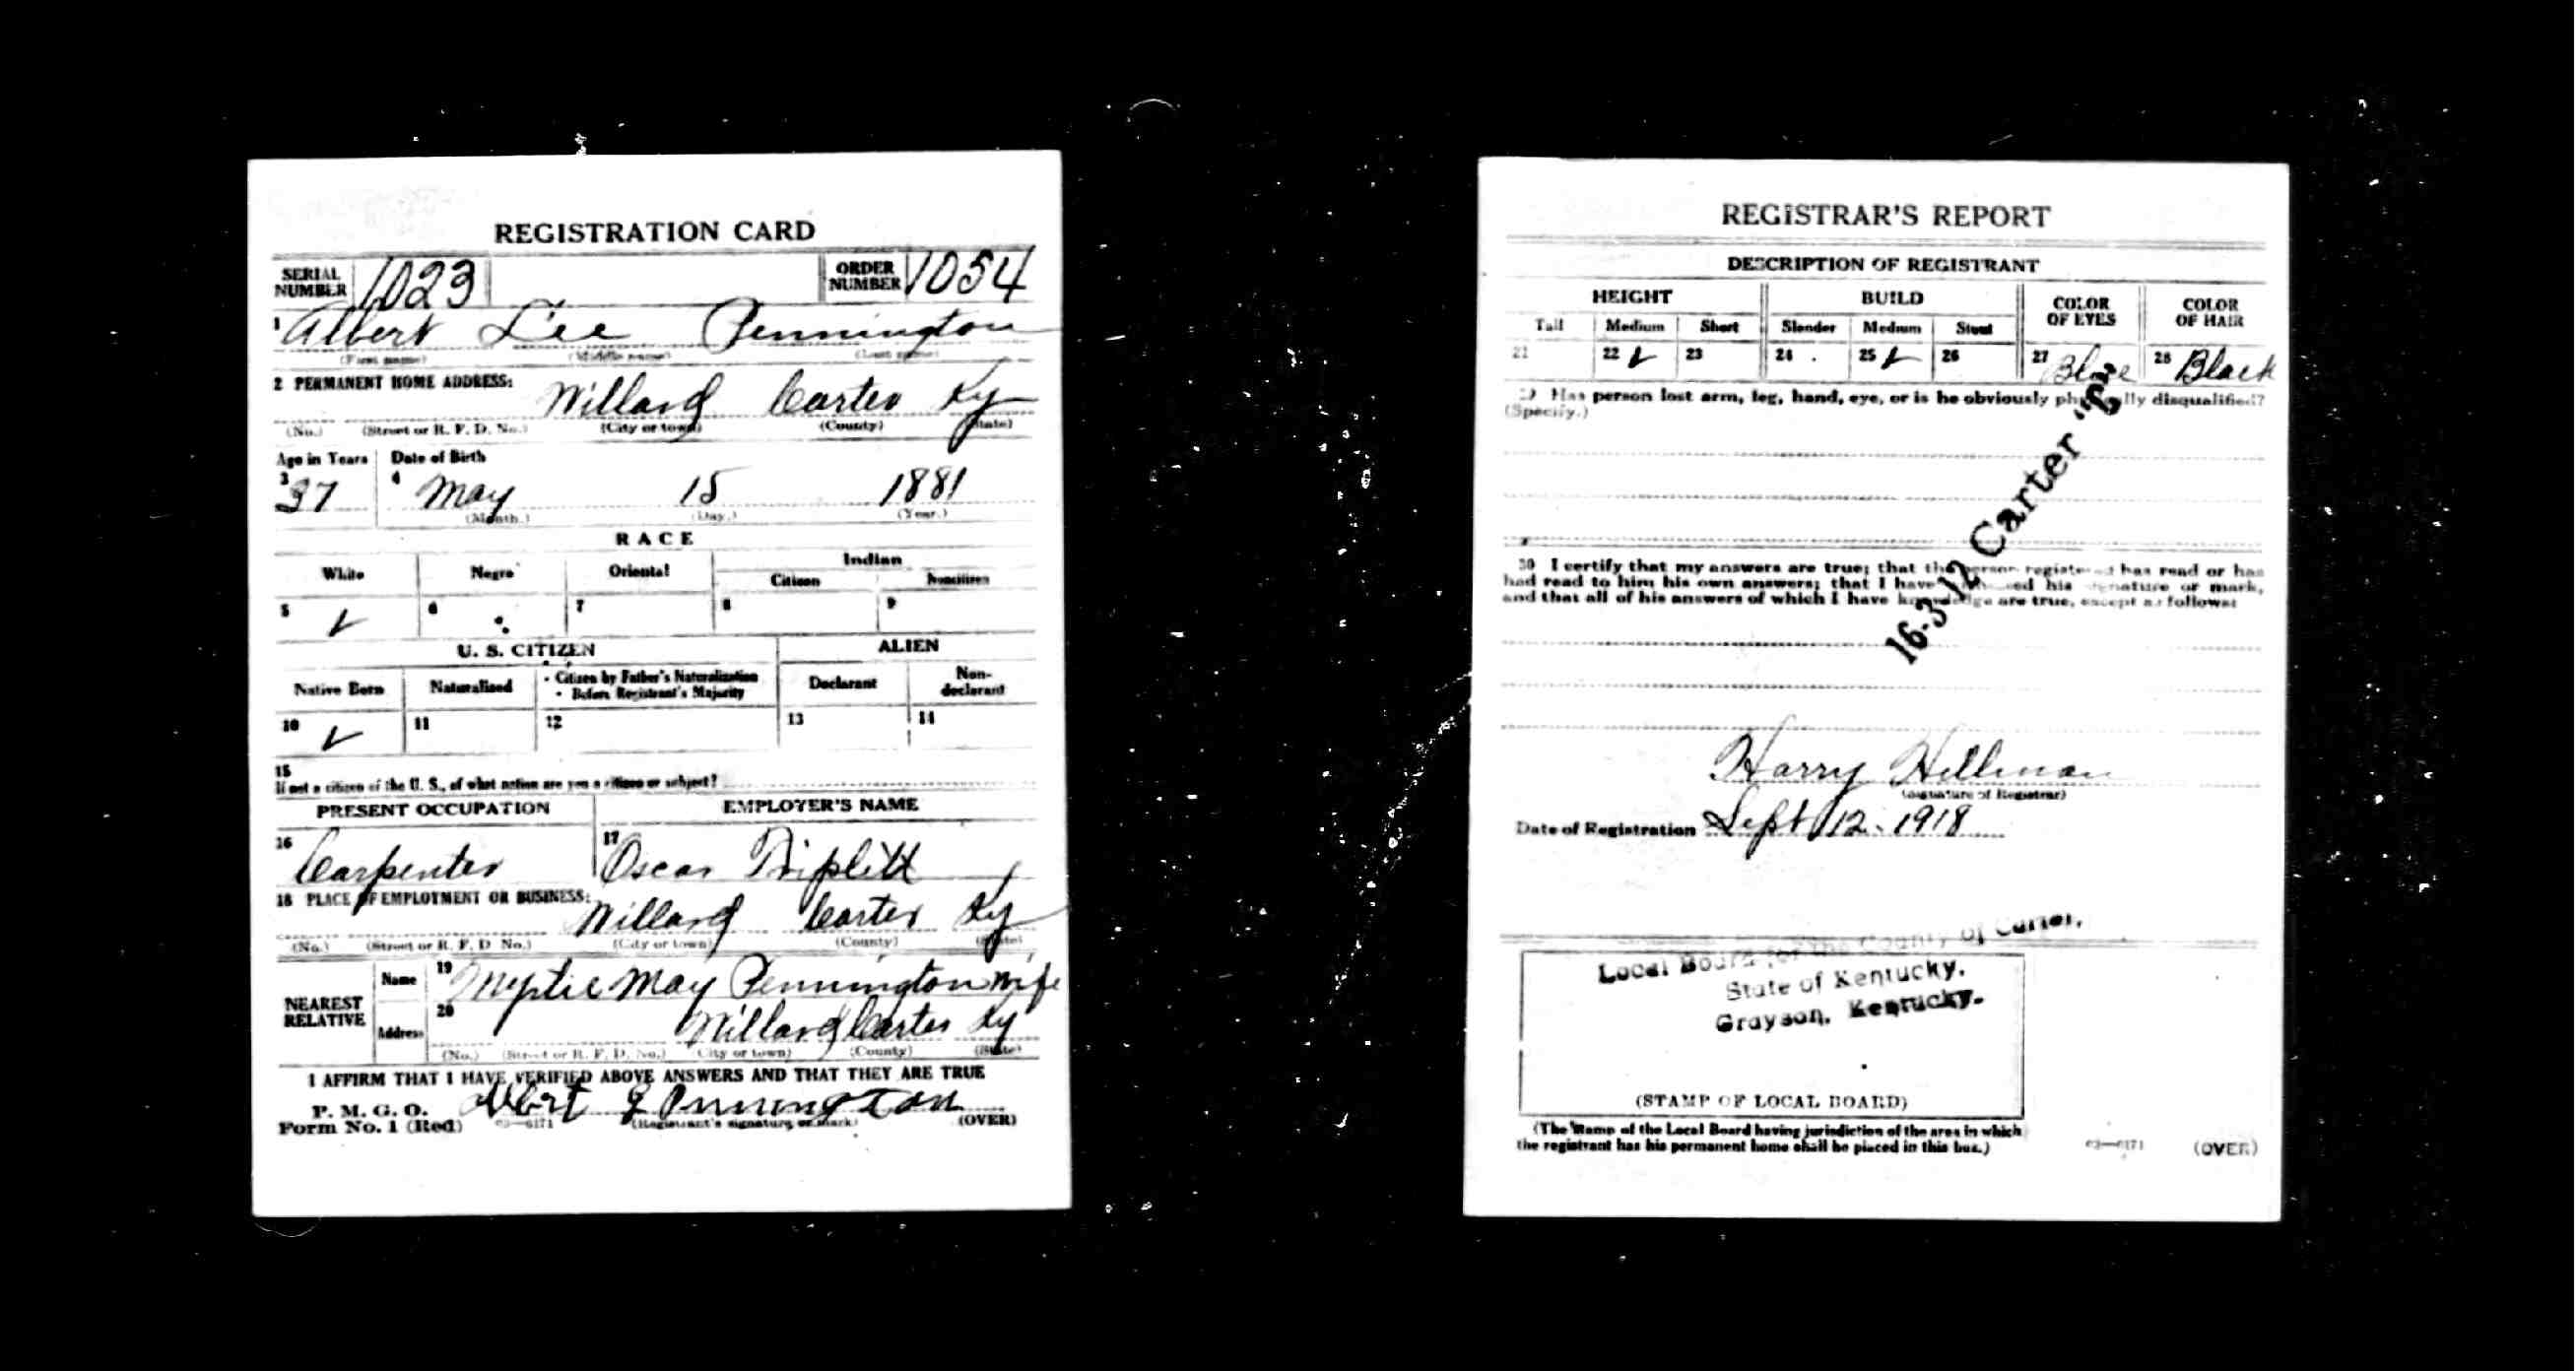 REGISTRATION CARD
SERIAL NUMBER 1023 ORDER NUMBER 1054
1 Albert Lee Pennington
(First name) (Middle name) (Last name)
2 PERMANENT HOME ADDRESS:
Willard Carter Ky
(No.) (Street or R. F. D. No.) (City or town) (County) (State)
Age in Years Date of Birth
3 37 4 May 15 1881
(Month.) (Day.) (Year.)
RACE
White Negro Oriental Indian
Citizen Noncitizen
5 ✓ 6 7 8 9
U. S. CITIZEN ALIEN
Native Born Naturalized Citizen by Father's Naturalization Before Registrant's Majority Declarant Non-declarant
10 ✓ 11 12 13 14
15
If not a citizen of the U. S., of what nation are you a citizen or subject?
PRESENT OCCUPATION EMPLOYER'S NAME
16 Carpenter 17 Oscar Triplett
18 PLACE OF EMPLOYMENT OR BUSINESS:
Willard Carter Ky
(No.) (Street or R. F. D. No.) (City or town) (County) (State)
NEAREST RELATIVE Name 19 Myrtie May Pennington wife
Address 20 Willard Carter Ky
(No.) (Street or R. F. D. No.) (City or town) (County) (State)
I AFFIRM THAT I HAVE VERIFIED ABOVE ANSWERS AND THAT THEY ARE TRUE
P. M. G. O.
Form No. 1 (Red) Albert L Pennington
03—6171 (Registrant's signature or mark) (OVER)
REGISTRAR'S REPORT
DESCRIPTION OF REGISTRANT
HEIGHT BUILD COLOR OF EYES COLOR OF HAIR
Tall Medium Short Slender Medium Stout
21 22 ✓ 23 24 25 ✓ 26 27 Blue 28 Black
29 Has person lost arm, leg, hand, eye, or is he obviously physically disqualified?
(Specify.)
16-3-12 Carter "B"
30 I certify that my answers are true; that the person registered has read or has
had read to him his own answers; that I have witnessed his signature or mark,
and that all of his answers of which I have knowledge are true, except as follows:
Harry Hillman
(Signature of Registrar)
Date of Registration Sept 12 - 1918
Local Board for the County of Carter,
State of Kentucky.
Grayson, Kentucky.
(STAMP OF LOCAL BOARD)
(The stamp of the Local Board having jurisdiction of the area in which
the registrant has his permanent home shall be placed in this box.)
03—6171 (OVER)